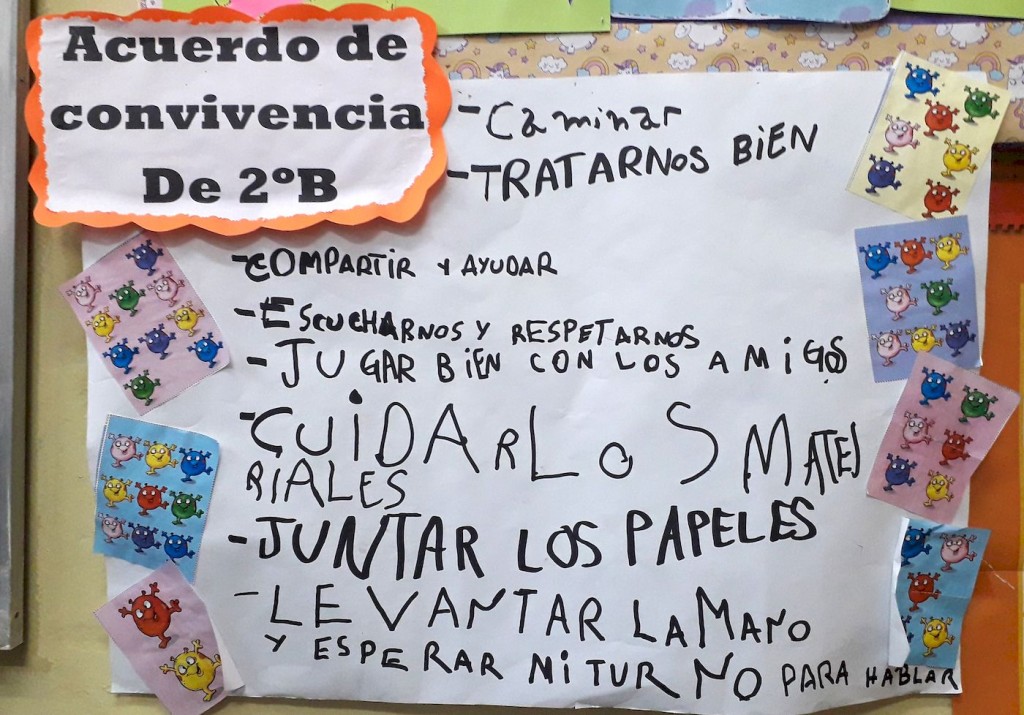 Acuerdo de
convivencia
De 2ºB
-Caminar
-TRATARNOS BiEN
-COMPARTiR Y AYUDAR
-ESCUCHARNOS Y RESPETARNOS
-JUGAR BiEN CON LOS AMiGOS
-CUiDAR LOS MATE
RIALES
-JUNTAR LOS PAPELES
-LEVANTAR LA MANO
Y ESPERAR Mi TURNO PARA HABLAR